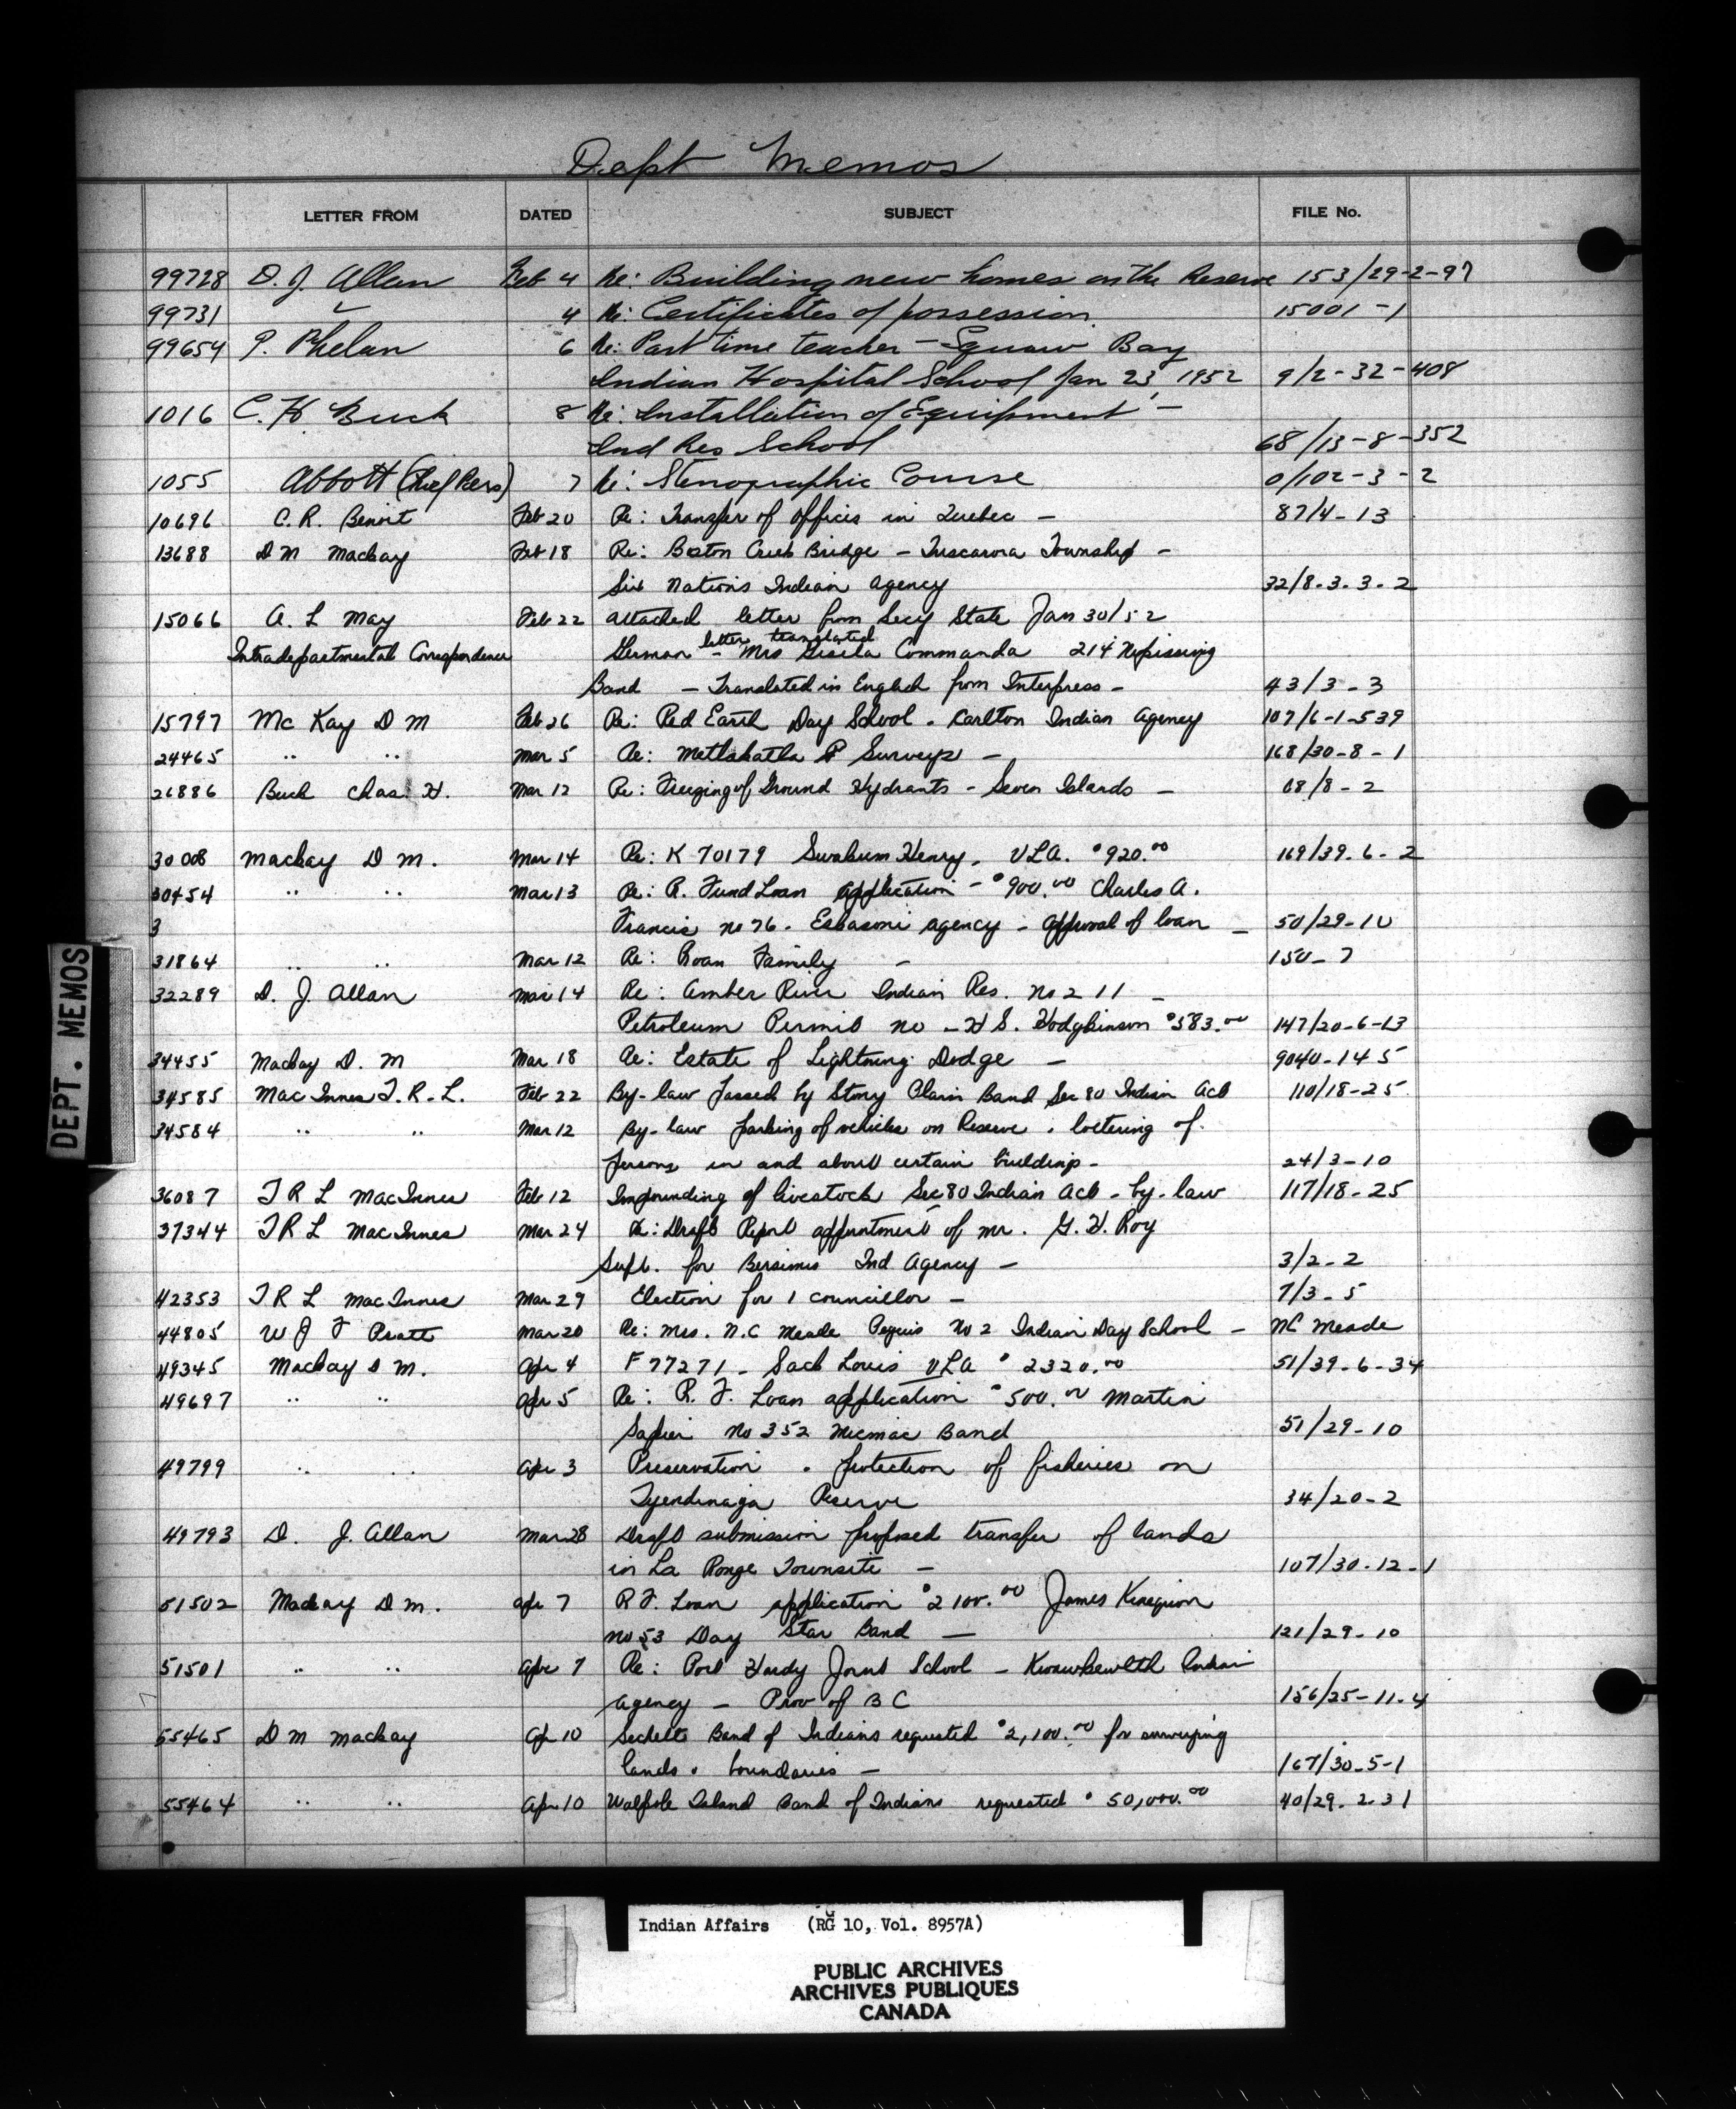 Dept Memos
LETTER FROM DATED SUBJECT FILE No.
99728 D. J. Allan Feb 4 Re: Building new homes on the Reserve 153/29-2-97
99731 " 4 Re: Certificates of possession 15001-1
99654 P. Phelan 6 Re: Part time teacher - Squaw Bay
Indian Hospital School Jan 23, 1952 9/2-32-408
1016 C. H Buck 8 Re: Installation of Equipment -
Ind Res School 68/13-8-352
1055 Abbott (Chief Pers) 7 Re: Stenographic Course 0/102-3-2
10696 C. R. Benoit Feb 20 Re: Transfer of offices in Quebec - 87/4-13
13688 D M Mackay Feb 18 Re: Boston Creek Bridge - Tuscarora Township -
Six Nations Indian Agency 32/8-3-3-2
15066 A. L May Feb 22 attached letter from Secy State Jan 30/52
Intradepartmental Correspondence German letter translated - Mrs Gisela Commanda 214 Nipissing
Band - Translated in English from Interpress - 43/3-3
15797 Mc Kay D M Feb 26 Re: Red Earth Day School - Carlton Indian Agency 107/6-1-539
24465 " " Mar 5 Re: Metlakatla Surveys - 168/30-8-1
26886 Buck Chas. H. Mar 12 Re: Freezing of Ground Hydrants - Seven Islands - 68/8-2
30008 Mackay D M. Mar 14 Re: K 70179 Swakum Henry. VLA. $920.00 169/39-6-2
30454 " " Mar 13 Re: R. Fund Loan application - $900.00 Charles A.
3 Francis no 76. Eskasoni agency - approval of loan - 50/29-10
31864 " " Mar 12 Re: Roan Family - 150-7
32289 D. J. Allan Mar 14 Re: Amber River Indian Res. no 211 -
Petroleum Permit no - H S. Hodgkinson $583.00 147/20-6-13
34455 Mackay D. M Mar 18 Re: Estate of Lightning Dodge - 9040-145
34585 MacInnes T. R. L. Feb 22 By-law passed by Stony Plain Band Sec 80 Indian Act 110/18-25
34584 " " Mar 12 By-law parking of vehicles on Reserve . loitering of
persons in and about certain buildings - 24/3-10
36087 T R L MacInnes Feb 12 Impounding of livestock Sec 80 Indian Act - by-law 117/18-25
37344 T R L MacInnes Mar 24 Re: Draft Report appointment of Mr. G. H. Roy
Supt. for Bersimis Ind Agency - 3/2-2
42353 T R L MacInnes Mar 29 Election for 1 councillor - 7/3-5
44805 W J F Pratt Mar 20 Re: Mrs. N.C Meade Peguis No 2 Indian Day School - NC Meade
49345 Mackay D M. Apr 4 F 77271 - Sack Louis VLA $2320.00 51/39-6-34
49697 " " Apr 5 Re: R. F. Loan application $500.00 Martin
Sapier No 352 Micmac Band 51/29-10
49799 " " Apr 3 Preservation . protection of fisheries on
Tyendinaga Reserve 34/20-2
49793 D. J. Allan Mar 28 Draft submission proposed transfer of lands
in La Ronge Townsite - 107/30-12-1
51502 Mackay D M. Apr 7 R F. Loan application $2100.00 James Kinequon
no 53 Day Star Band - 121/29-10
51501 " " Apr 7 Re: Port Hardy Joint School - Kwawkewlth Indian
Agency - Prov of B C 156/25-11-4
55465 D M Mackay Ap 10 Sechelt Band of Indians requested $2,100.00 for surveying
lands . boundaries - 167/30-5-1
55464 " " Apr 10 Walpole Island Band of Indians requested $50,000.00 40/29-2-31
DEPT. MEMOS
Indian Affairs (RG 10, Vol. 8957A)
PUBLIC ARCHIVES
ARCHIVES PUBLIQUES
CANADA